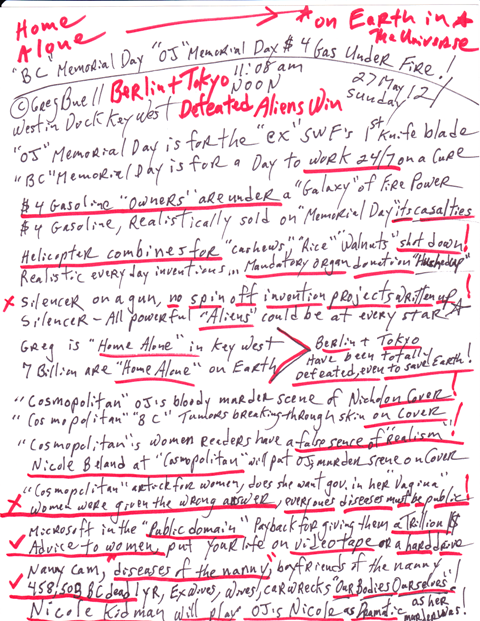 Home Alone → ★ on Earth in ★ The Universe
"BC" Memorial Day "OJ" Memorial Day $4 Gas Under Fire!
11:08 am
©Greg Buell Berlin + Tokyo NOON 27 May 12
Westin Dock Key West Defeated Aliens Win Sunday
"OJ" Memorial Day is for the "ex" SWF's 1st Knife blade
"BC" Memorial Day is for a Day to work 24/7 on a Cure
$4 Gasoline "Owners" are under a "Galaxy" of Fire Power
$4 Gasoline, Realistically sold on "Memorial Day" its casalties
Helicopter combines for "cashews" "Rice" "Walnuts" "shot down!
Realistic everyday inventions... Mandatory organ donation "Hushed up"
x Silencer on a gun, no spin off invention projects written up!
Silencer - All powerful "Aliens" could be at every star ★
Greg is "Home Alone" in Key West
7 Billion are "Home Alone" on Earth
> Berlin + Tokyo
Have been totally
defeated, even to save Earth!
"Cosmopolitan" OJ's bloody marder scene of Nichol on Cover!
"Cosmopolitan" "BC" Tumors breaking through skin on Cover!
"Cosmopolitan"'s women Readers have a false sence of "Realism"!
Nicole Beland at "Cosmopolitan" will put OJ, marder scene on Cover
"Cosmopolitan" artick for women, does she want gov. in her "Vagina"
x Women were given the wrong answer, everyones diseases must be public!
Microsoft in the "Public domain" Payback for giving them a trillion $
✓ Advice to women, put your life on video tape or a hard drive
Nanny Cam, "diseases of the nanny" boyfriends of the nanny
✓ 458,503 BC dead 1 yR, Ex Wives, Wives, car wrecks "Our Bodies Ourselves"!
Nicole Kidman will play OJ's Nicole as Dramatic as her marder was!